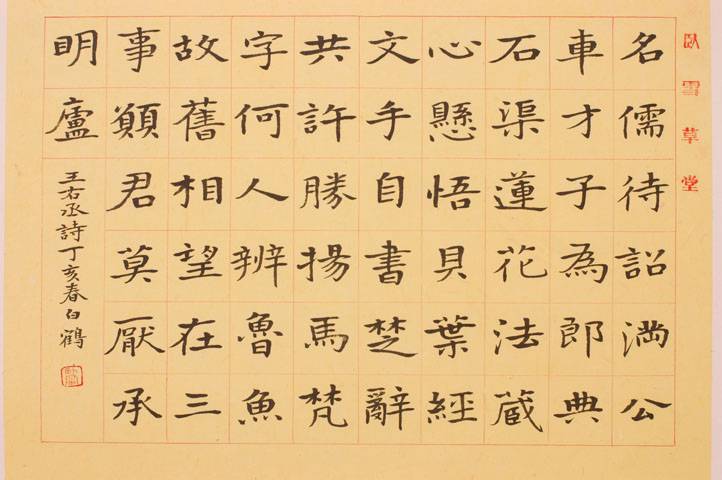 臥雪草堂
名儒待詔満公
車才子為郎典
石渠蓮花法藏
心懸悟貝葉經
文手自書楚辭
共許勝揚馬梵
字何人辨魯魚
故舊相望在三
事願君莫厭承
明廬
王右丞詩丁亥春白鶴